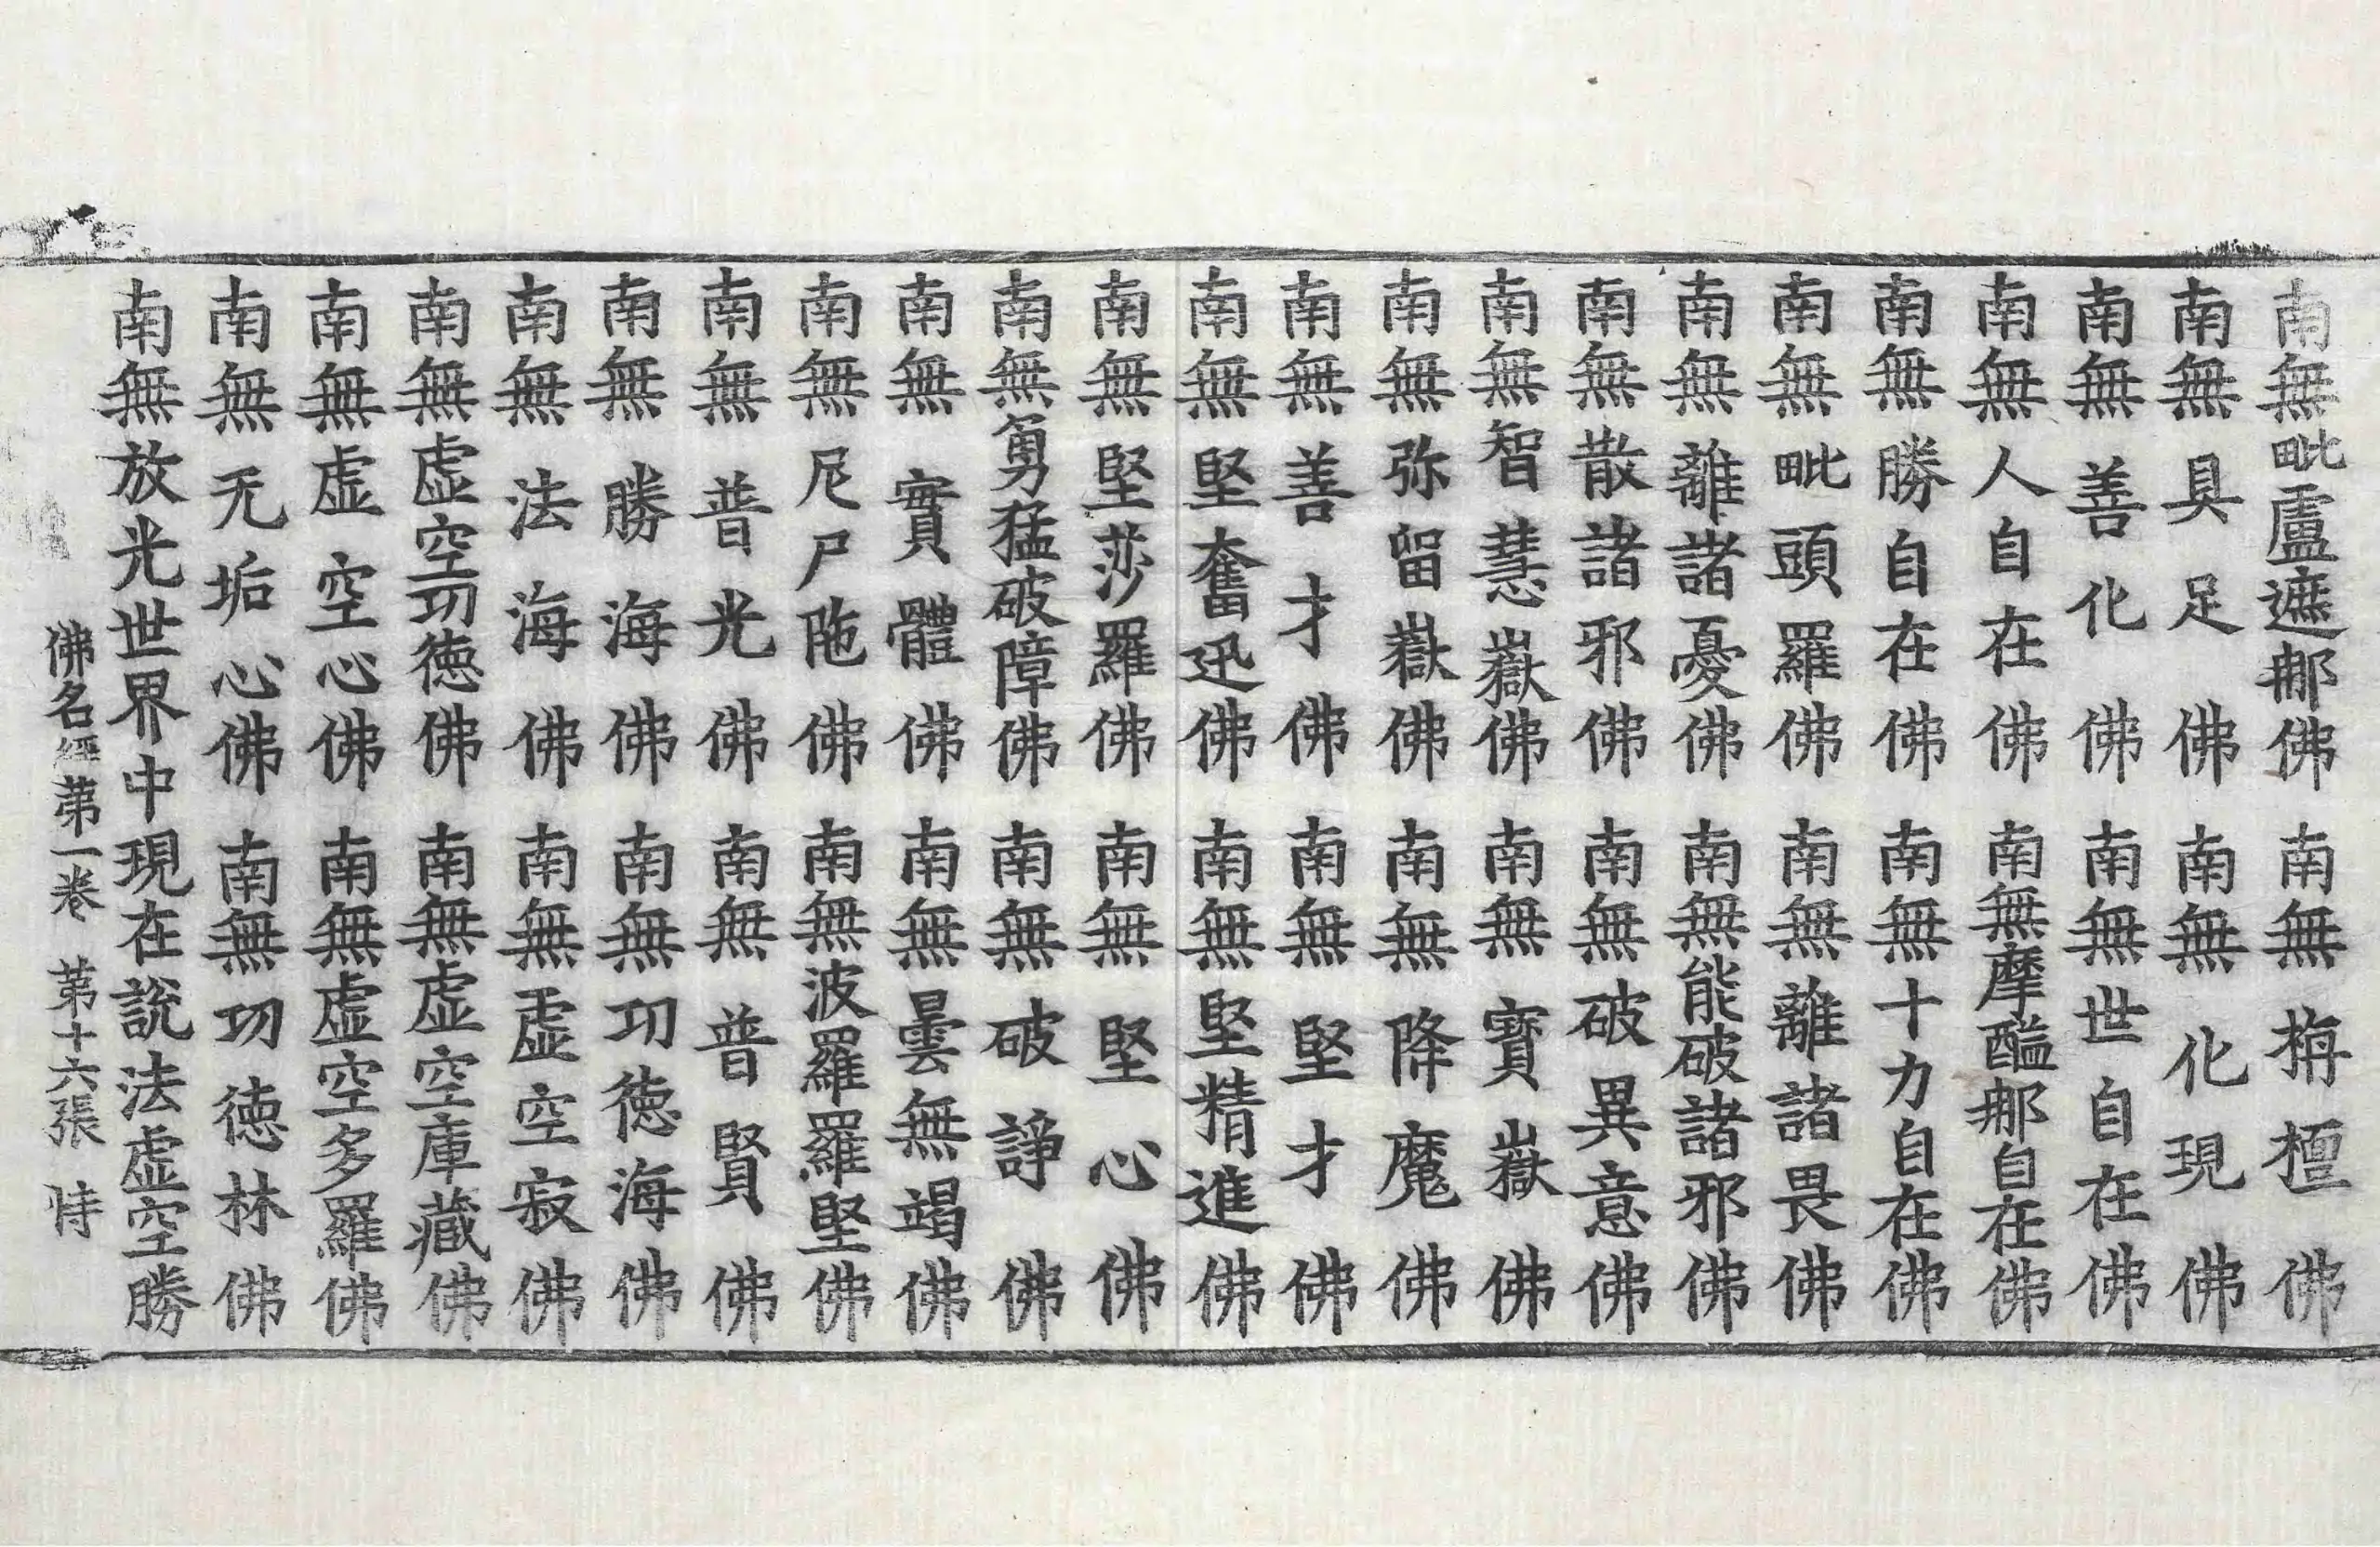 南無毗盧遮那佛 南無栴檀佛
南無具足佛 南無化現佛
南無善化佛 南無世自在佛
南無人自在佛 南無摩醯那自在佛
南無勝自在佛 南無十力自在佛
南無毗頭羅佛 南無離諸畏佛
南無離諸憂佛 南無能破諸邪佛
南無散諸邪佛 南無破異意佛
南無智慧嶽佛 南無寶嶽佛
南無弥留嶽佛 南無降魔佛
南無善才佛 南無堅才佛
南無堅奮迅佛 南無堅精進佛
南無堅莎羅佛 南無堅心佛
南無勇猛破障佛 南無破諍佛
南無實體佛 南無曇無竭佛
南無尼尸陁佛 南無波羅羅堅佛
南無普光佛 南無普賢佛
南無勝海佛 南無功徳海佛
南無法海佛 南無虛空寂佛
南無虛空功徳佛 南無虛空庫藏佛
南無虛空心佛 南無虛空多羅佛
南無无垢心佛 南無功徳林佛
南無放光世界中現在說法虛空勝
佛名經第一卷 第十六張 恃